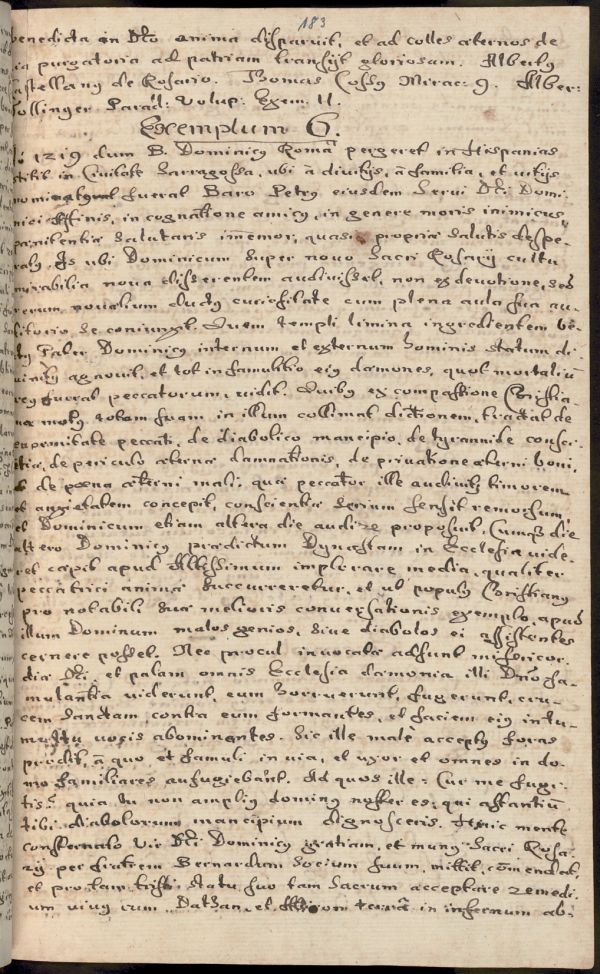 183
benedicta in Dno anima disparuit, et ad colles æternos de
via purgatoria ad patriam transijt gloriosam. Albertus
Castellanus de Rosario. Thomas Cossus Mirac: 9. Alber:
Sollinger Parad: Volup: Exem: 11.
Exemplum 6.
1219 dum B. Dominicus Româ pergeret in Hispanias
stetit in Civitate Sarragossa, ubi à divitijs, à familia, et vitijs
fuerat Baro Petrus eiusdem Servi Dei Domi-
nici Affinis, in cognatione amicus, in genere moris inimicus,
pænitentiæ salutaris im̄emor, quasi propriæ salutis despe-
ratus. Is ubi Dominicum super novo Sacri Rosarij cultu
mirabilia nova disserentem audivisset, non ex devotione, sed
rerum novalium ductus curiositate cum plena aula sua au-
ditorio se coniunxit. Quem templi limina ingredientem
Pater Dominicus internum et externum hominis statum di-
vinitus agnovit, et tot in famulitio eius dæmones, quot mortaliū
reus fuerat peccatorum, vidit. Quibus ex compassione Christia-
na motus totam suam in illum collimat dictionem, tractat de
enormitate peccati, de diabolico mancipio, de tyrannide conscien-
tiæ, de periculo æternæ damnationis, de privatione æterni boni,
et de pœna æterni mali; quæ peccator ille audiens timorem
et anxietatem concepit, conscientiæ serium sensit remorsum,
et Dominicum etiam altera die audire proposuit. Cumq3 die
altero Dominicus prædictum Dynastam in Ecclesia vide-
ret cæpit apud Altissimum implorare media, qualiter
peccatrici animæ succurreretur, et ut populus Christianus
pro notabili suæ melioris conversationis exemplo, apud
illum Dominum malos genios, sive diabolos ei assistentes
cernere posset. Nec procul invocata adsunt misericor-
dia Dei, et palam omnis Ecclesia dæmonia illi Dno fa-
mulantia viderunt, eum horruerunt, fugerunt, cru-
cem sanctam contra eum formantes, et faciem eius in tu-
multu vocis abominantes. Sic ille malè acceptus foras
prodijt, à quo et famuli in via, et uxor et omnes in do-
mo familiares aufugiebant. Ad quos ille: Cur me fugi-
tis? quia tu non amplius dominus noster es; qui astantiū
tibi diabolorum mancipium dignosceris. Hinc mente
consternato vir Dei Dominicus gratiam, et munus Sacri Rosa-
rij per fratrem Bernardum Socium suum mittit, com̄endat,
et pro tam tristi statu suo tam sacrum acceptare remedi-
um vivus cum Dathan, et Abirom terrâ in infernum ab-